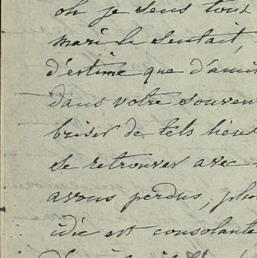 oh je sens tout
mari le sentait,
d'estime que d'ami
dans votre souven
briser de tels liens
se retrouver avec
avons perdus, plus
idée est consolante